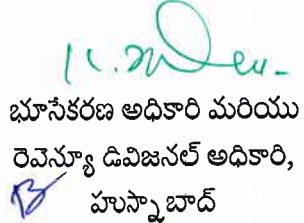 భూసేకరణ అధికారి మరియు
రెవెన్యూ డివిజనల్ అధికారి,
హుస్నాబాద్